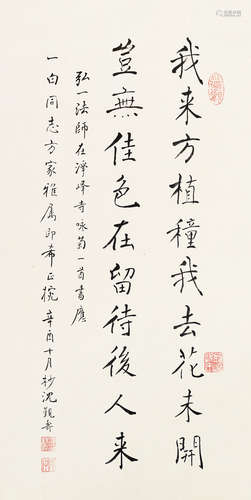 我来方植種我去花未開
豈無佳色在留待後人来
弘一法師在淨峰寺詠菊一首書應
一白同志方家雅属即希正捥辛酉十月抄沈覲壽